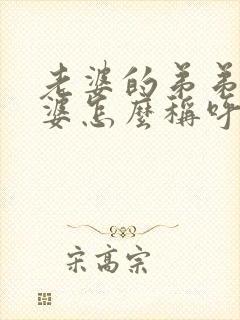 老婆的弟弟
婆怎麼稱呼
宋高宗